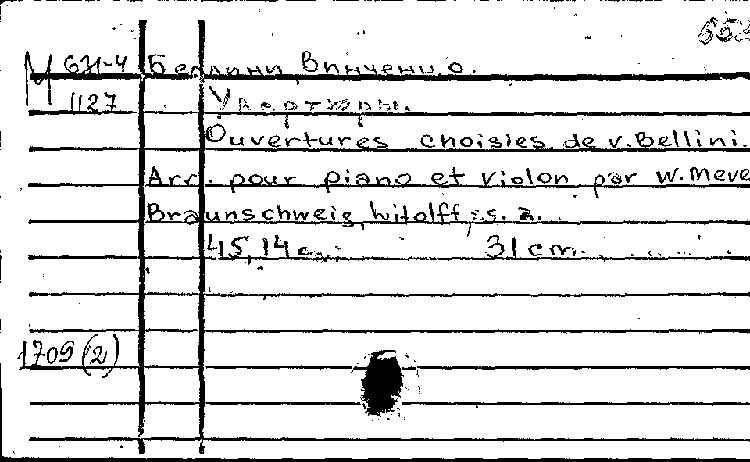 М 6Н-4 Беллини, Винченцо.
1127 Увертюры.
Ouvertures choisies de V. Bellini.
Arr. pour piano et violon par W. Meve
Braunschweig, Litolff, s. a.
45, 14 c. 31 cm.
1709 (2)